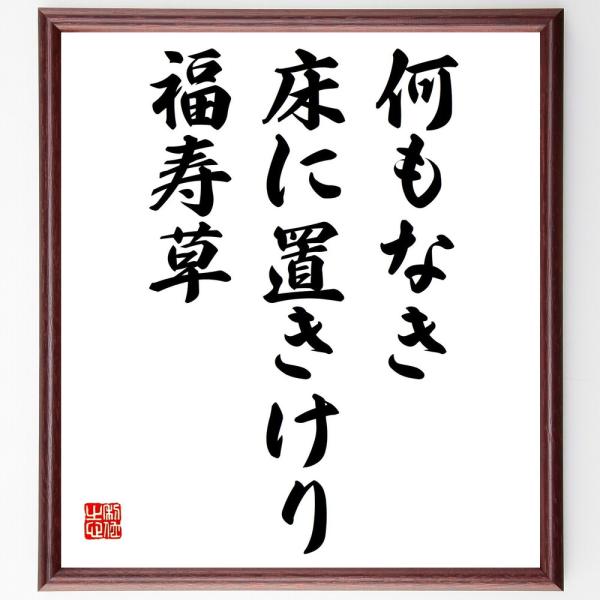 何もなき
床に置きけり
福寿草